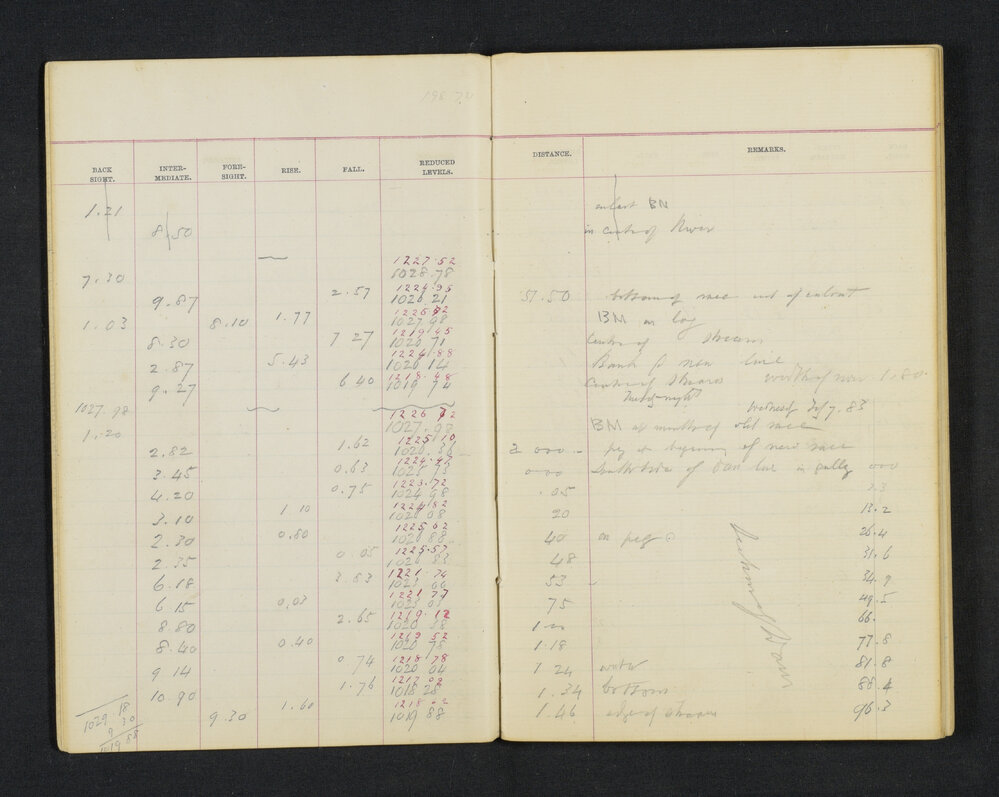 198.72
BACK SIGHT. INTER-MEDIATE. FORE-SIGHT. RISE. FALL. REDUCED LEVELS. DISTANCE. REMARKS.
1.21 on last BM
8.50 in centre of River
1227.52
7.30 1028.78
1224.95
9.87 2.57 1026.21 51.50 bottom of race out of
1.03 8.10 1.77 1027.98 BM on log
1219.45
8.30 7 27 1020 71 Centre of stream
1224.88
2.87 5.43 1026 14 Bank
1218.48
9.27 6 40 1019 74 Centre of stream width of 1.80
1027.98 7.83
1226 72
1.20 1027.98 BM at mouth of old race
1225 10
2.82 1.62 1026 36 000 peg at beginning of new race
3.45 0.63 1025 73 000 of line in gully 000
1223.72
4.20 0.75 1024 98 .05 3.3
1224 82
3.10 1 10 1026 08 20 13.2
2.30 0.80 1026 88 40 on peg 26.4
2.35 0.05 1026 83 48 31.6
1221.74
6.18 3.83 1023 00 53 34.9
1221 77
6 15 0.03 1023 03 75 49.5
1219.12
8.80 2.65 1020 38 1 00 66.
1219 52
8.40 0.40 1020 78 1.18 77.8
1218 78
9 14 0.74 1020 04 1.24 water 81.8
10.90 1.76 1018 28 1.34 bottom 88.4
9.30 1.60 1019 88 1.46 edge of stream 96.3
1029 18
9 30
1019 88